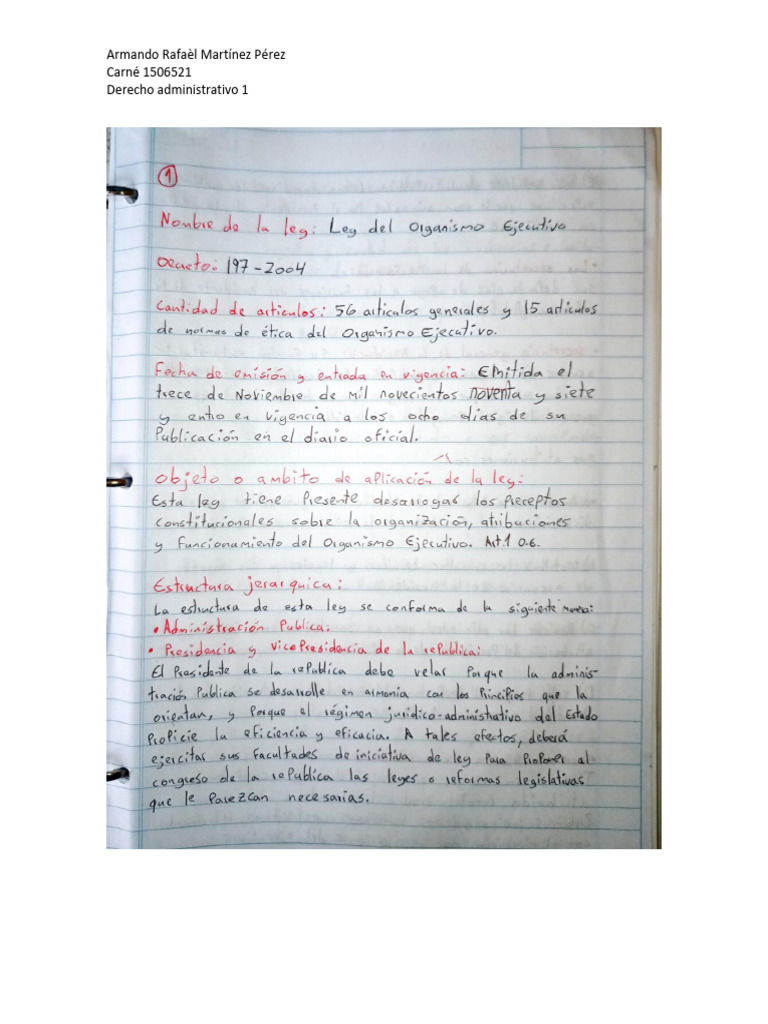 Armando Rafaèl Martínez Pérez
Carné 1506521
Derecho administrativo 1
1
Nombre de la ley: Ley del Organismo Ejecutivo
Decreto: 197-2004
Cantidad de articulos: 56 articulos generales y 15 articulos
de normas de ética del Organismo Ejecutivo.
Fecha de emisión y entrada en vigencia: Emitida el
trece de Noviembre de mil novecientos noventa y siete
y entro en vigencia a los ocho días de su
Publicación en el diario oficial.
Objeto o ambito de aplicación de la ley:
Esta ley tiene Presente desarrogas los Preceptos
constitucionales sobre la organización, atribuciones
y Funcionamiento del Organismo Ejecutivo. Art.1 O.E.
Estructura jerarquica:
La estuctura de esta ley se conforma de la siguiente manera:
• Administración Publica:
• Presidencia y VicePresidencia de la rePublica:
El Presidente de la rePublica debe velar Porque la adminis-
tración Publica se desarrolle en armonia con los Principios que la
orientan, y Porque el régimen juridico-administrativo del Estado
ProPicie la eficiencia y eficacia. A tales efectos, deberá
ejercitar sus facultades de iniciativa de ley Para ProPoner al
congreso de la rePublica las leyes o reformas legislativas
que le Parezcan necesarias.